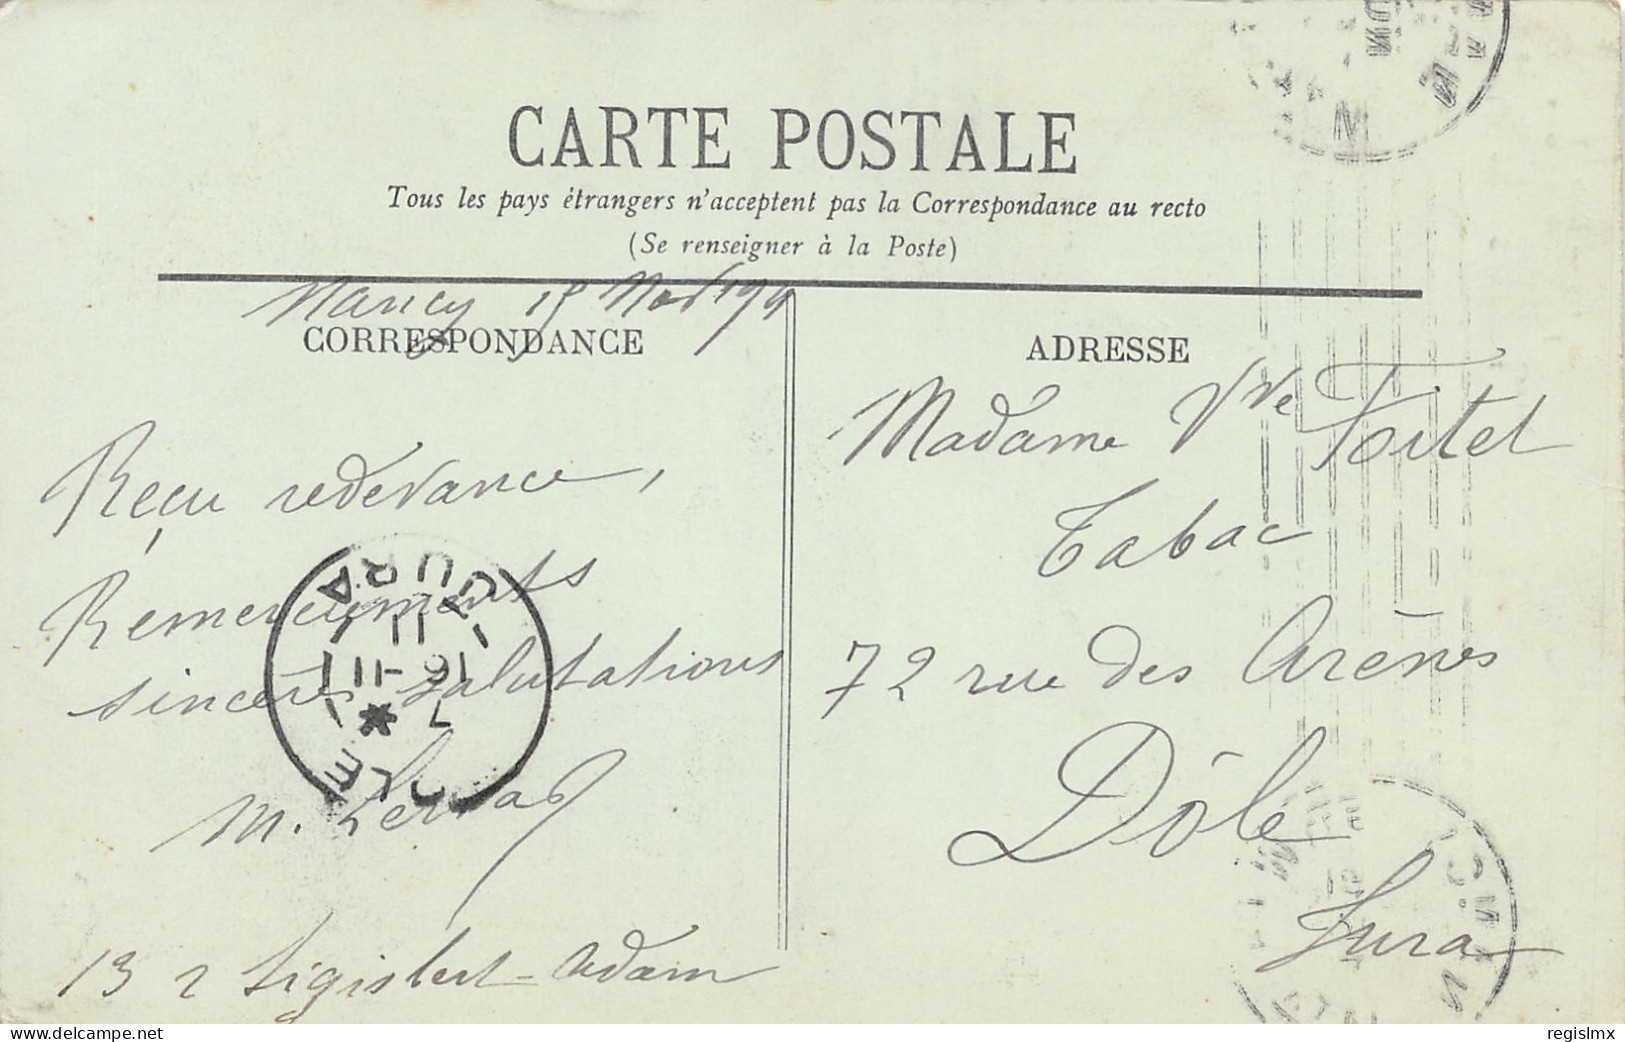 CARTE POSTALE
Tous les pays étrangers n'acceptent pas la Correspondance au recto
(Se renseigner à la Poste)
Nancy 15 Nov
CORRESPONDANCE
Reçu redevance,
Remerciements
sincères salutations
M.
13 r Sigisbert-Adam
ADRESSE
Madame Vve Tortel
Tabac
72 rue des Arènes
Dôle
Jura
DOLE
JURA
7
16-11
11
*
www.delcampe.net
regislmx